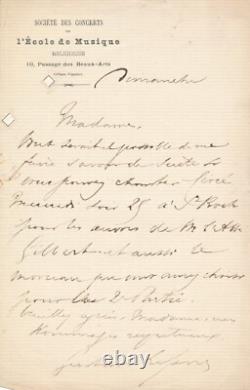 SOCIÉTÉ DES CONCERTS
DE
l'École de Musique
RELIGIEUSE
10, Passage des Beaux-Arts
Dimanche
Madame,
vous serait-il possible de me
faire savoir de suite si
vous pouvez chanter
soir 25 à St Roch
pour les de
Gilbert et aussi le
morceau que vous avez choisi
pour la 2e Partie.
Veuillez agréer Madame, mes
hommages respectueux
Gustave Lefèvre